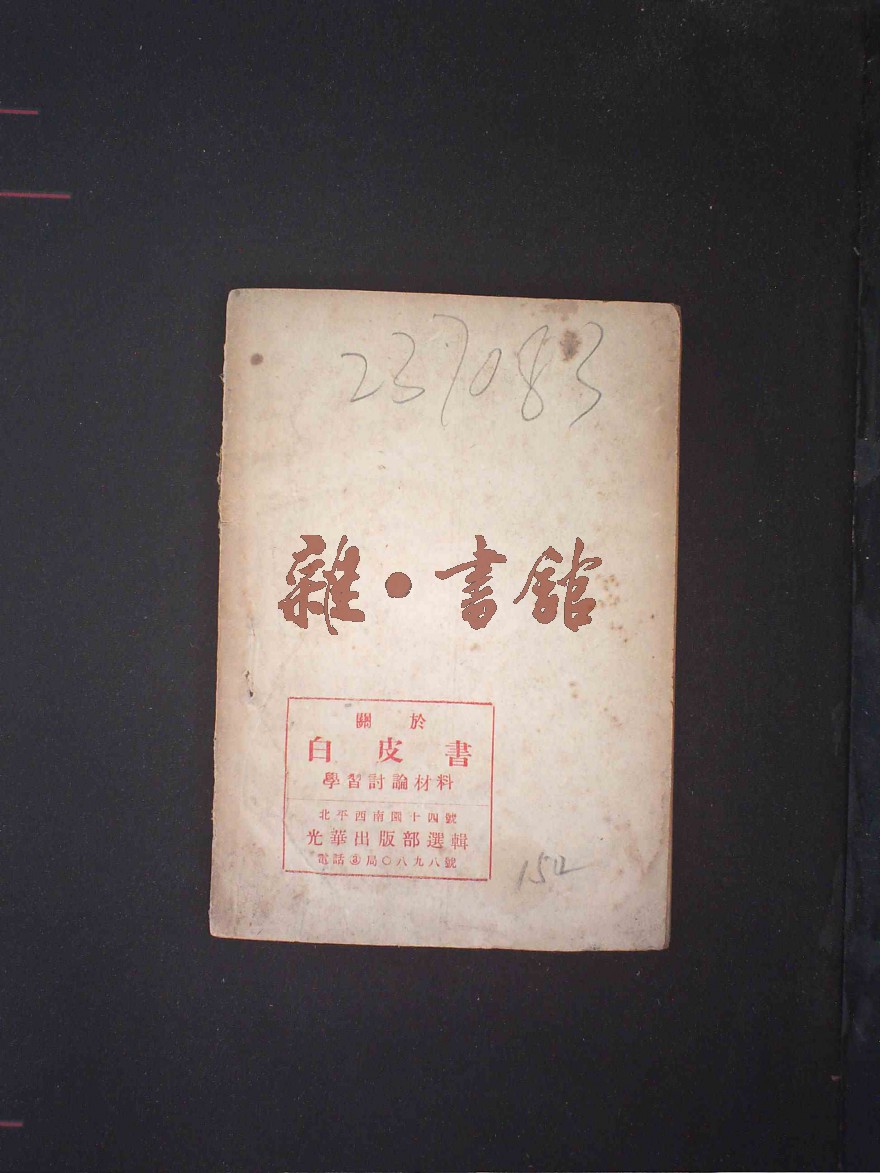 237083
雜·書館
關於
白皮書
學習討論材料
北平西南園十四號
光華出版部選輯
電話③局〇八九八號